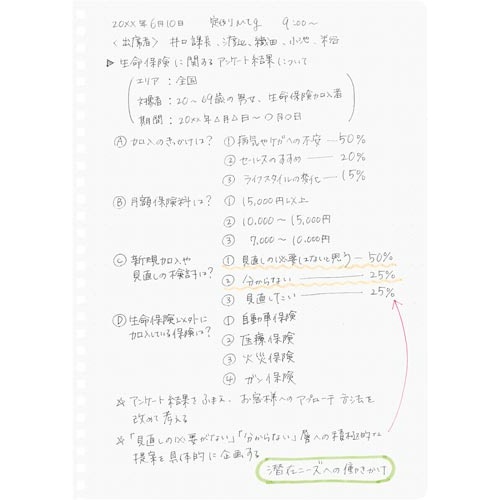 20XX年6月10日 定例Mtg 9:00〜
〈出席者〉 井口課長、澤辺、織田、小池、米谷
▶ 生命保険に関するアンケート結果について
エリア：全国
対象者：20〜69歳の男女、生命保険加入者
期間：20XX年△月△日〜○月○日
Ⓐ 加入のきっかけは？ ① 病気やケガへの不安 — 50%
② セールスのすすめ — 20%
③ ライフスタイルの変化 — 15%
Ⓑ 月額保険料は？ ① 15,000円以上
② 10,000〜15,000円
③ 7,000〜10,000円
Ⓒ 新規加入や ① 見直しの必要はないと思う — 50%
見直しの検討は？ ② 分からない — 25%
③ 見直したい — 25%
Ⓓ 生命保険以外に ① 自動車保険
加入している保険は？ ② 医療保険
③ 火災保険
④ ガン保険
☆ アンケート結果をふまえ、お客様へのアプローチ方法を
改めて考える
☆ 「見直しの必要がない」「分からない」層への積極的な
提案を具体的に企画する
潜在ニーズへの働きかけ